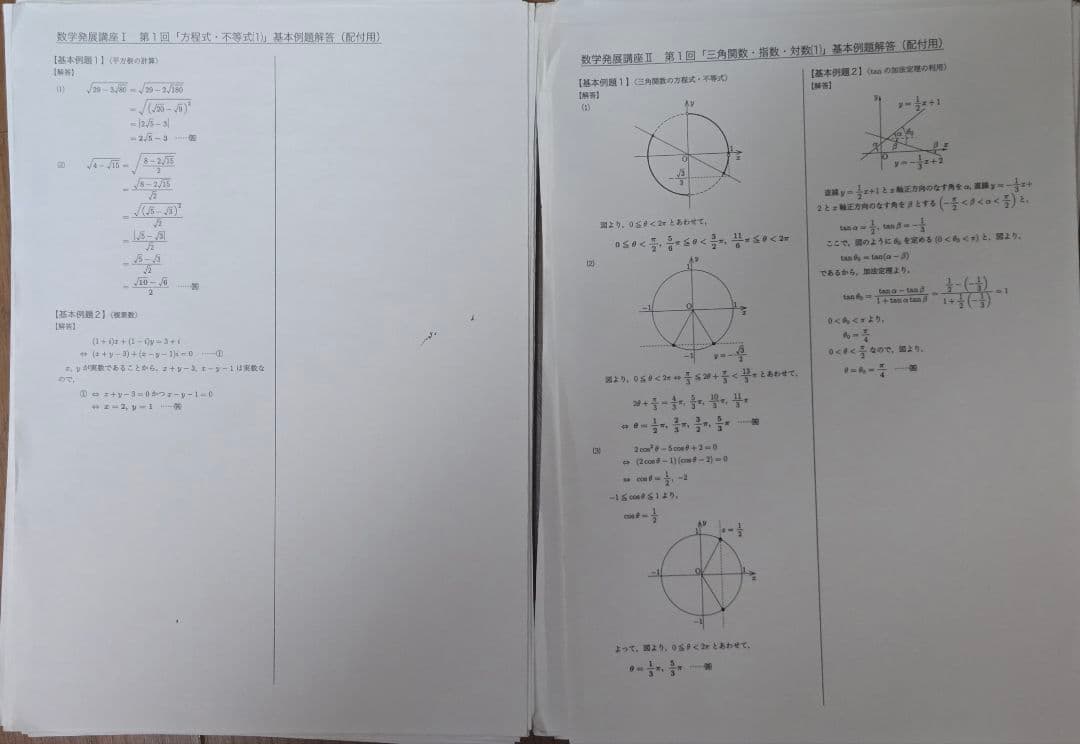 数学発展講座Ⅰ 第1回「方程式・不等式(1)」基本例題解答(配付用)
【基本例題1】(平方根の計算)
【解答】
(1) √(29−3√80) = √(29−2√180)
= √((√20−√9)²)
= |2√5−3|
= 2√5−3 ……㊥
(2) √(4−√15) = √((8−2√15)/2)
= √(8−2√15)/√2
= √((√5−√3)²)/√2
= |√5−√3|/√2
= (√5−√3)/√2
= (√10−√6)/2 ……㊥
【基本例題2】(複素数)
【解答】
(1+i)x+(1−i)y=3+i
⇔ (x+y−3)+(x−y−1)i=0 ……①
x, yが実数であることから, x+y−3, x−y−1は実数な
ので,
① ⇔ x+y−3=0かつx−y−1=0
⇔ x=2, y=1 ……㊥
数学発展講座Ⅱ 第1回「三角関数・指数・対数(1)」基本例題解答(配付用)
【基本例題1】(三角関数の方程式・不等式)
【解答】
(1)
y
1
O
x
−√3/3
図より, 0≦θ<2πとあわせて,
0≦θ<π/2, 5/6π≦θ<3/2π, 11/6π≦θ<2π
(2)
y
1
−1
O
1
x
−1
y=−√3/2
図より, 0≦θ<2π⇔π/3≦2θ+π/3<13/3πとあわせて,
2θ+π/3=4/3π, 5/3π, 10/3π, 11/3π
⇔ θ=1/2π, 2/3π, 3/2π, 5/3π ……㊥
(3) 2cos²θ−5cosθ+2=0
⇔ (2cosθ−1)(cosθ−2)=0
⇔ cosθ=1/2, −2
−1≦cosθ≦1より,
cosθ=1/2
y
1
x=1/2
−1
O
1
x
−1
よって, 図より, 0≦θ<2πとあわせて,
θ=1/3π, 5/3π ……㊥
【基本例題2】(tanの加法定理の利用)
【解答】
y
y=1/2x+1
α
θ₀
α
β
β
x
O
y=−1/3x+2
直線y=1/2x+1とx軸正方向のなす角をα, 直線y=−1/3x+
2とx軸正方向のなす角をβとする(−π/2<β<α<π/2)と,
tanα=1/2, tanβ=−1/3
ここで, 図のようにθ₀を定める(0<θ₀<π)と, 図より,
tanθ₀=tan(α−β)
であるから, 加法定理より,
tanθ₀=(tanα−tanβ)/(1+tanαtanβ)=(1/2−(−1/3))/(1+1/2(−1/3))=1
0<θ₀<πより,
θ₀=π/4
0<θ<π/2なので, 図より,
θ=θ₀=π/4 ……㊥